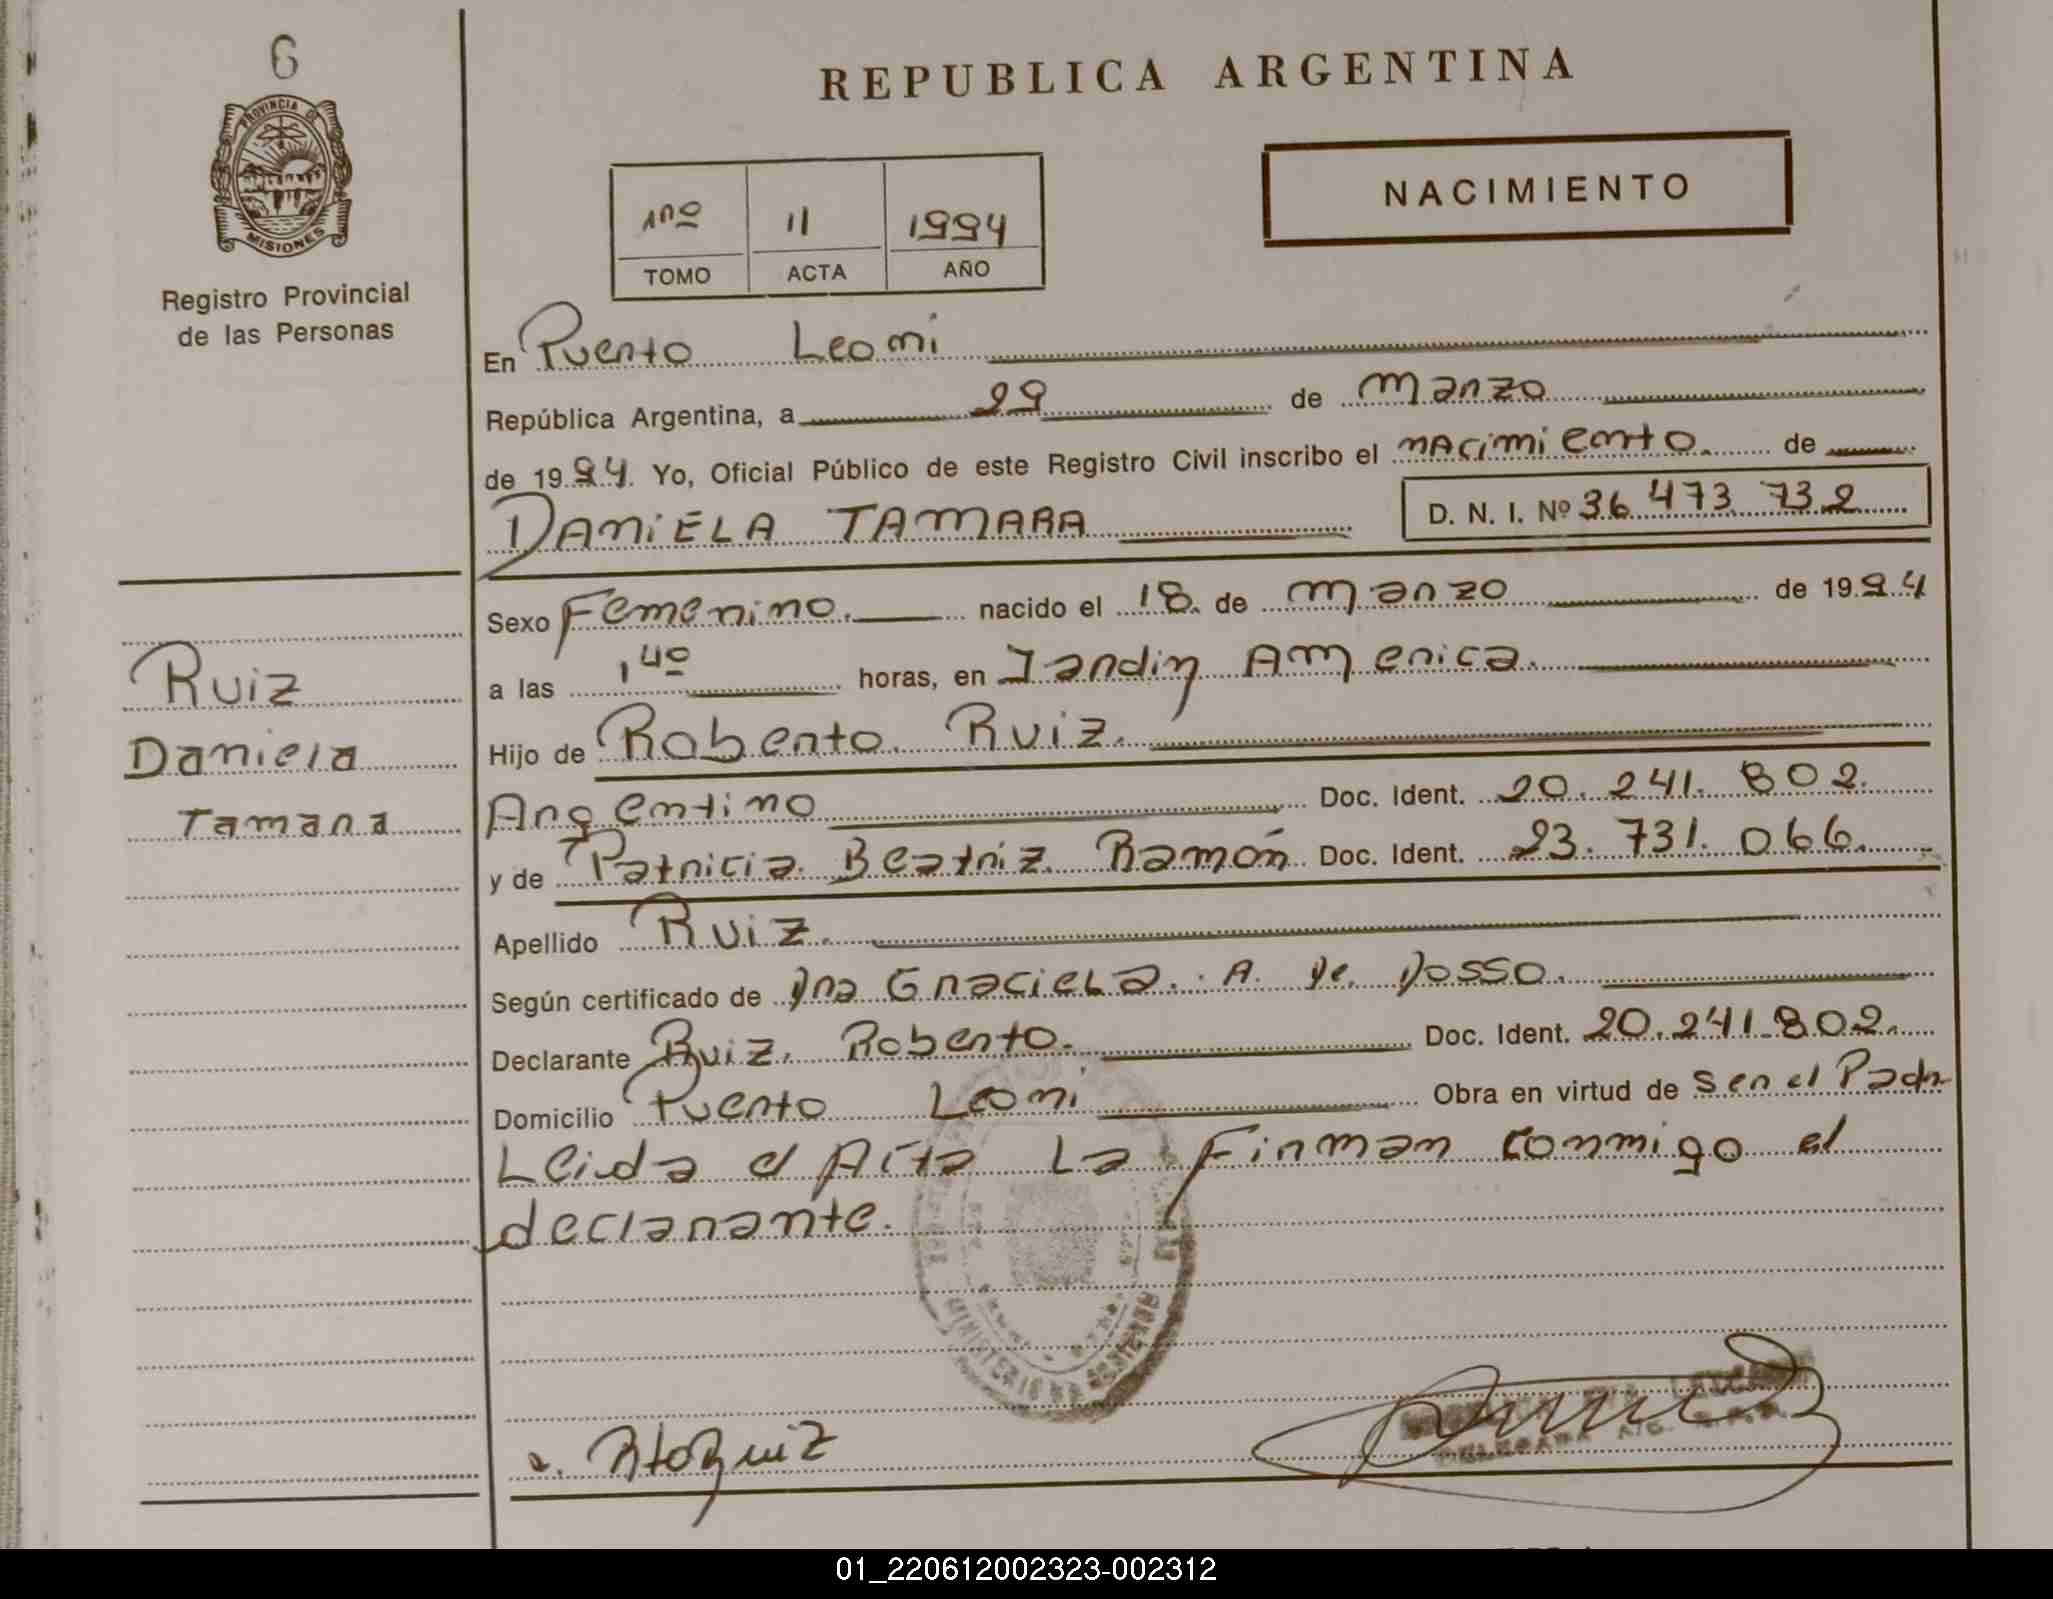 6
REPUBLICA ARGENTINA
PROVINCIA DE
MISIONES
Registro Provincial
de las Personas
1ro 11 1994
TOMO ACTA AÑO
NACIMIENTO
En Puerto Leoni
República Argentina, a 29 de Marzo
de 1994. Yo, Oficial Público de este Registro Civil inscribo el nacimiento de
DANIELA TAMARA D. N. I. Nº 36 473 732
Sexo Femenino. nacido el 18 de Marzo de 1994
a las 1 40 horas, en Jardin America.
Hijo de Roberto Ruiz.
Argentino Doc. Ident. 20.241.802.
y de Patricia Beatriz Ramón Doc. Ident. 23.731.066.
Apellido Ruiz.
Según certificado de Dra Graciela. A. De Dosso.
Declarante Ruiz, Roberto. Doc. Ident. 20.241.802.
Domicilio Puerto Leoni Obra en virtud de ser el Padr
Leida el Acta La Firman conmigo el
declarante.
Ruiz
Daniela
Tamara
MINISTERIO
Rto Ruiz
01_220612002323-002312